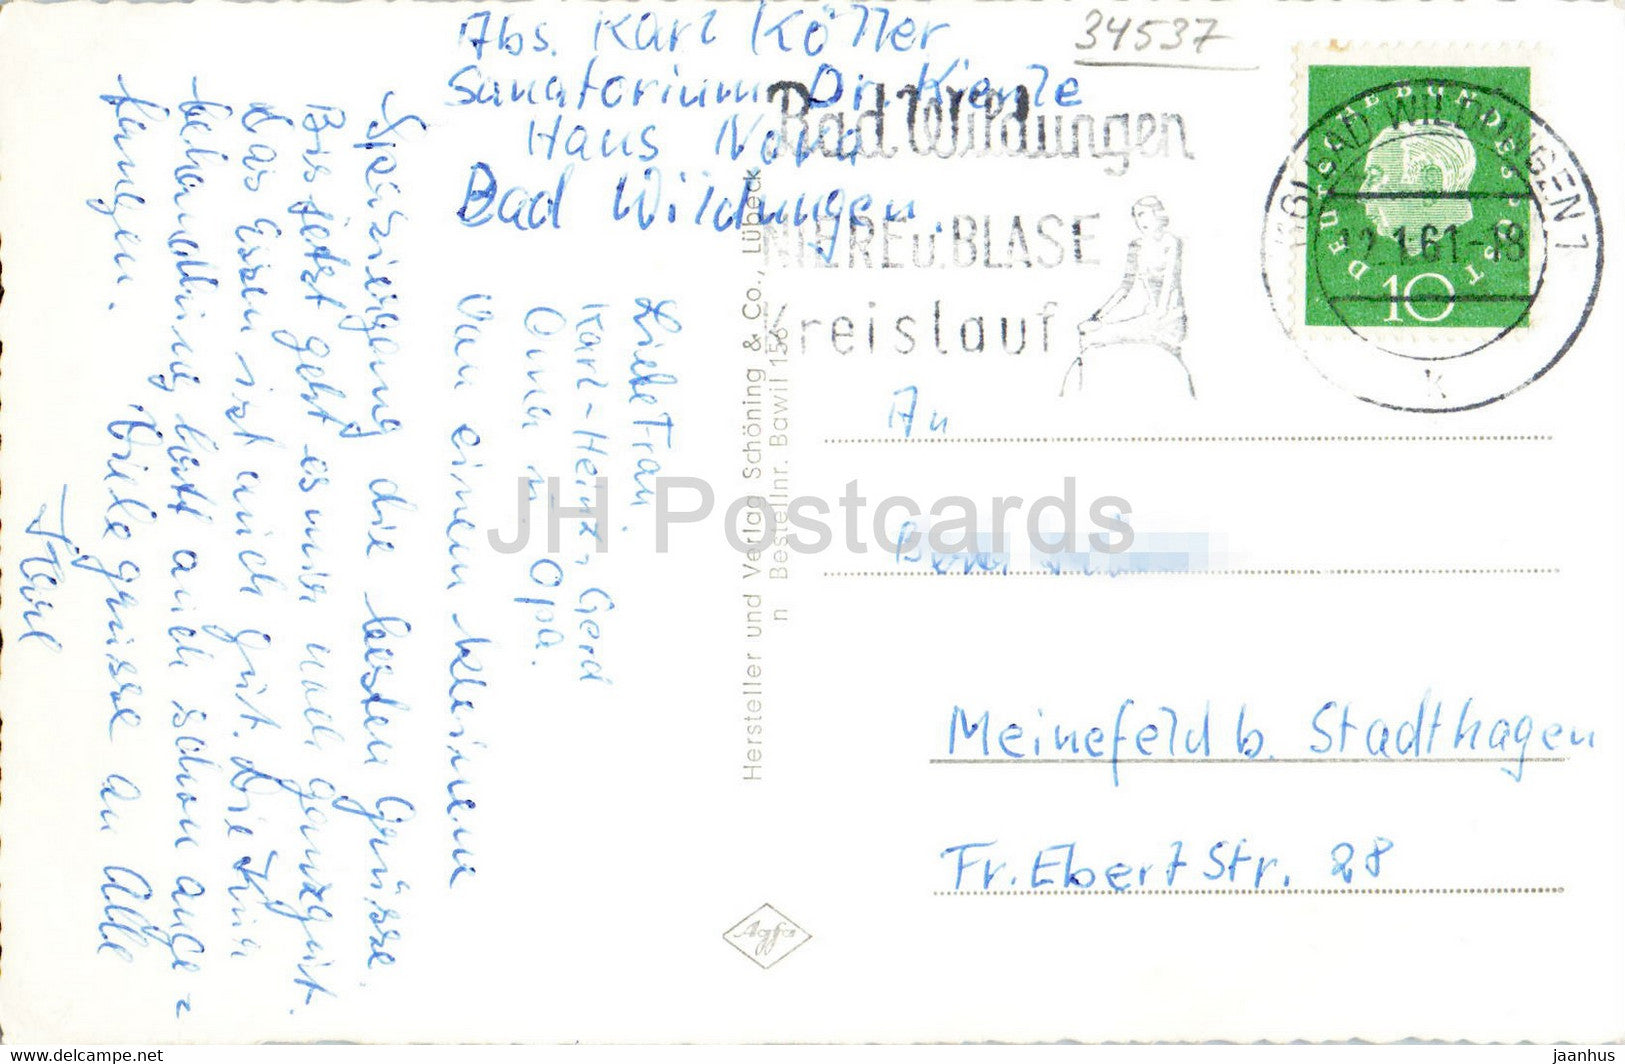 Abs. Karl Köller
Sanatorium Dr. Kienle
Haus
Bad Wildungen
34537
Bad Wildungen
NIERE u. BLASE
Kreislauf
BAD WILDUNGEN 1
12.1.61-18
k
DEUTSCHE BUNDESPOST
10
Liebe Frau
Karl-Heinz, Gerd
Oma u. Opa.
Von einem kleinem
Spaziergang die besten Grüsse.
Bis jetzt geht es mir noch ganz gut.
Das Essen ist auch gut. Die Kur
behandlung hat auch schon ange=
fangen. Viele grüsse an Alle
Karl
Hersteller und Verlag Schöning & Co., Lübeck
n Bestellnr. Bawil 156
An
Meinefeld b. Stadthagen
Fr. Ebert Str. 28
Agfa
JH Postcards
www.delcampe.net
jaanhus